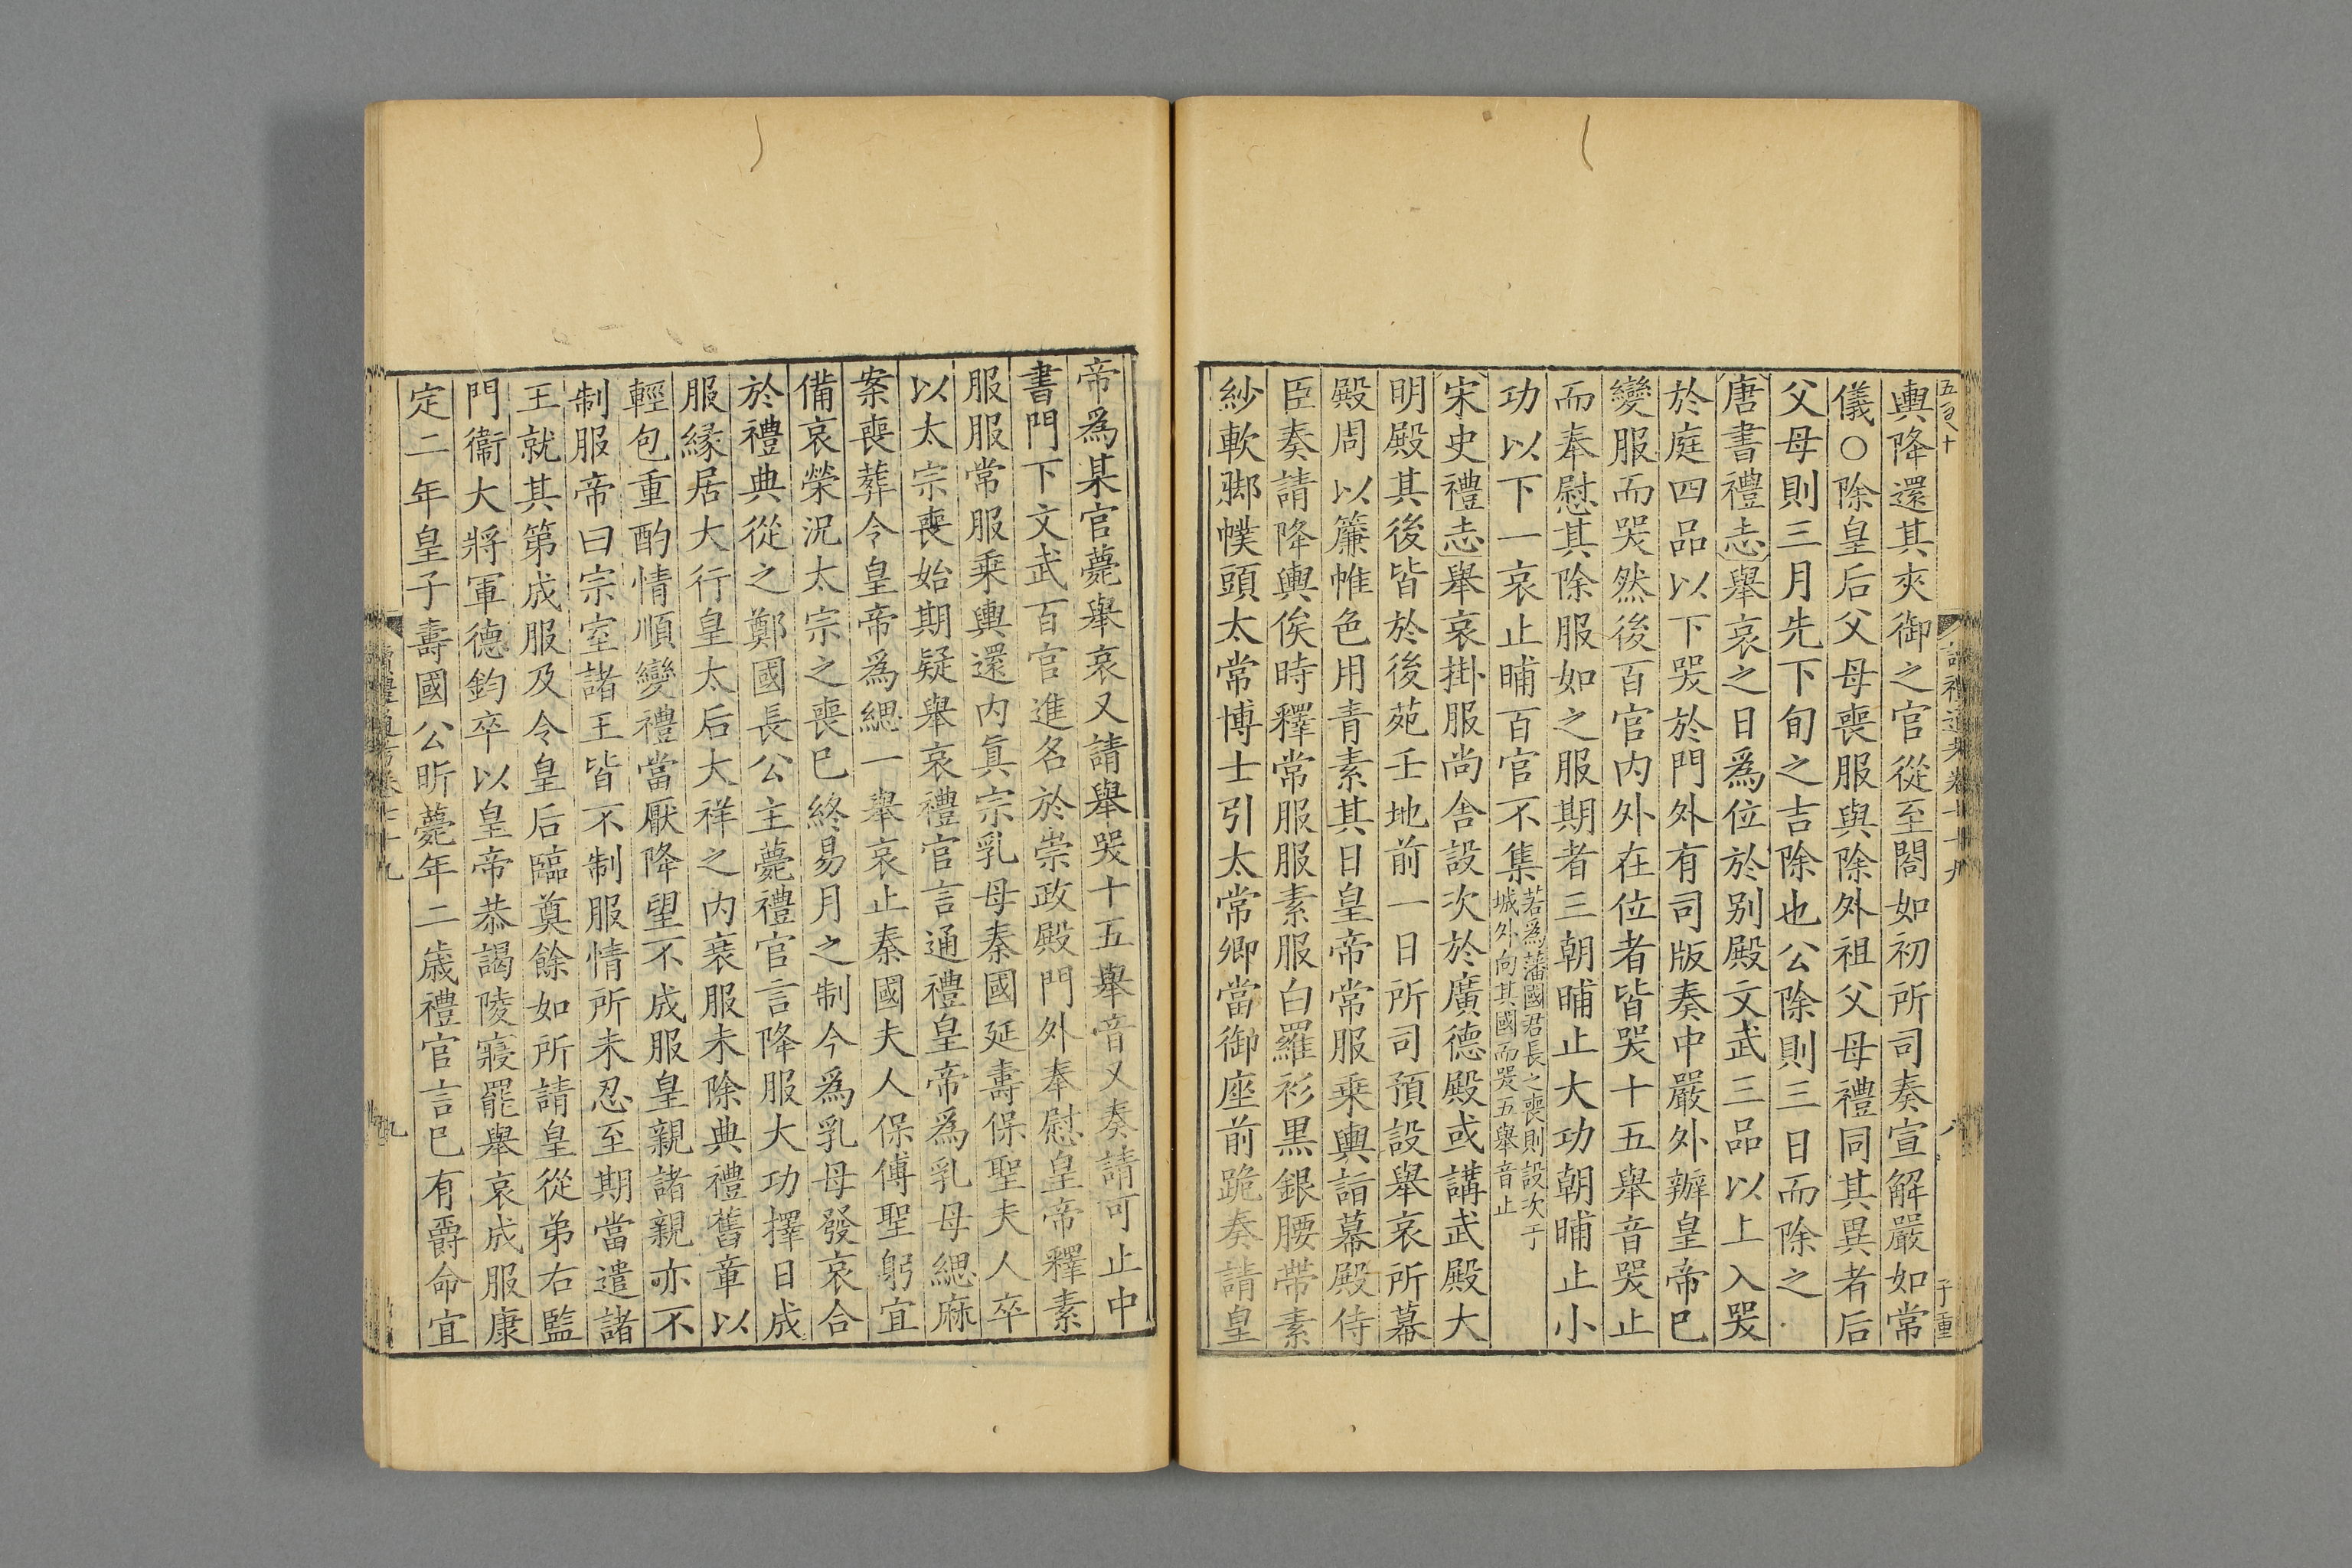 輿降還其夾御之官從至閤如初所司奏宣解嚴如常
儀○除皇后父母喪服與除外祖父母禮同其異者后
父母則三月先下旬之吉除也公除則三日而除之
唐書禮志舉哀之日爲位於别殿文武三品以上入哭
於庭四品以下哭於門外有司版奏中嚴外辦皇帝已
變服而哭然後百官内外在位者皆哭十五舉音哭止
而奉慰其除服如之服期者三朝晡止大功朝晡止小
功以下一哀止晡百官不集若爲藩國君長之喪則設次于
城外向其國而哭五舉音止
宋史禮志舉哀掛服尚舍設次於廣德殿或講武殿大
明殿其後皆於後苑壬地前一日所司預設舉哀所幕
殿周以簾帷色用青素其日皇帝常服乗輿詣幕殿侍
臣奏請降輿俟時釋常服服素服白羅衫黒銀腰帶素
紗軟脚幞頭太常博士引太常卿當御座前跪奏請皇
帝爲某官薨舉哀又請舉哭十五舉音又奏請可止中
書門下文武百官進名於崇政殿門外奉慰皇帝釋素
服服常服乗輿還内眞宗乳母秦國延壽保聖夫人卒
以太宗喪始期疑舉哀禮官言通禮皇帝爲乳母緦麻
案喪葬令皇帝爲緦一舉哀止秦國夫人保傅聖躬宜
備哀榮況太宗之喪已終易月之制今爲乳母發哀合
於禮典從之鄭國長公主薨禮官言降服大功擇日成
服縁居大行皇太后大祥之内衰服未除典禮舊章以
輕包重酌情順變禮當厭降望不成服皇親諸親亦不
制服帝曰宗室諸王皆不制服情所未忍至期當遣諸
王就其第成服及令皇后臨奠餘如所請皇從弟右監
門衞大將軍德鈞卒以皇帝恭謁陵寢罷舉哀成服康
定二年皇子壽國公昕薨年二歳禮官言已有爵命宜